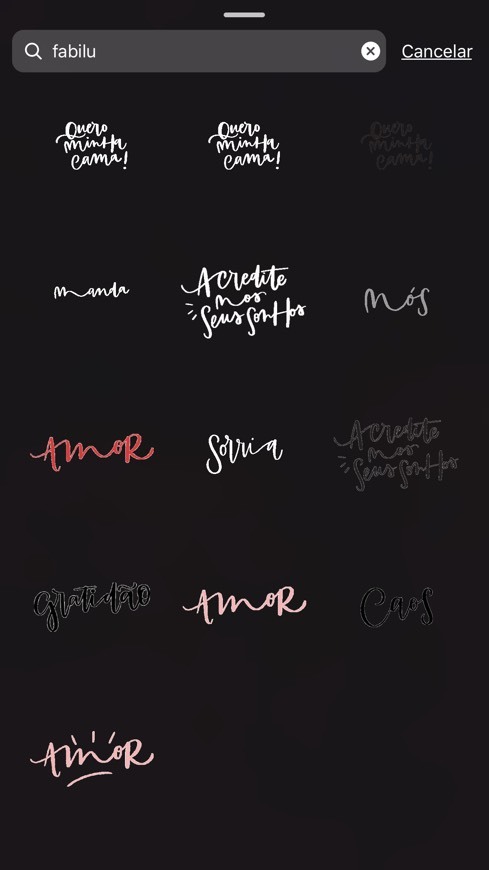 fabilu
Cancelar
Quero
minha
cama!
Quero
minha
cama!
Quero
minha
cama!
manda
Acredite
nos
seus sonhos
nós
AmoR
Sorria
Acredite
nos
seus sonhos
Gratidão
AmoR
Caos
AmoR